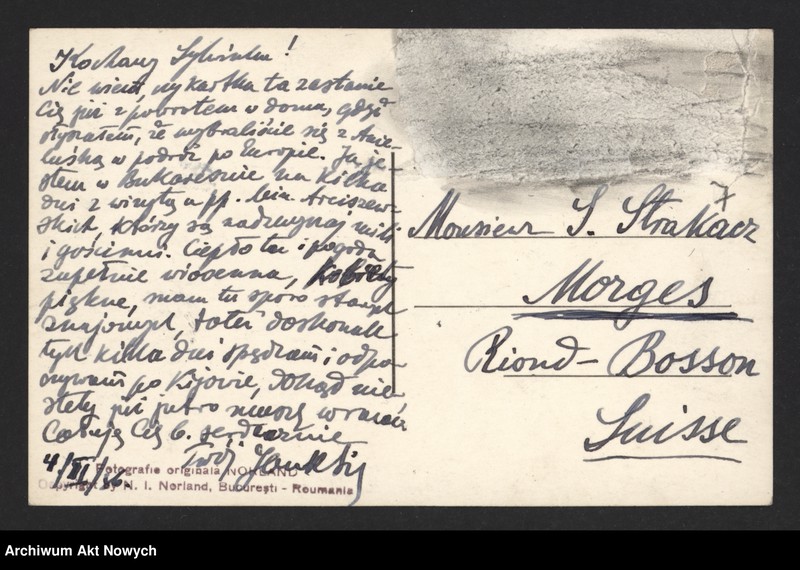 Kochany Sylwinku!
Nie wiem, czy kartka ta zastanie
Cię już z powrotem w domu, gdyż
słyszałem, że wybraliście się z Anie-
luśką w podróż po Europie. Ja je-
stem w Bukareszcie na kilka
dni z wizytą u pp. Min. Arciszew-
skich, którzy są nadzwyczaj mili
i gościnni. Ciepło tu i pogoda
zupełnie wiosenna, kobiety
piękne, mam tu sporo starych
znajomych, toteż doskonale
tych kilka dni spędzam i odpo-
czywam po Kijowie, dokąd nie-
stety już jutro muszę wracać
Całuję Cię b. serdecznie
Twój
4/ /36
Fotografie originala NORLAND
Copyright by N. I. Norland, București - Roumania
7
Monsieur S. Strakacz
Morges
Riond-Bosson
Suisse
Archiwum Akt Nowych